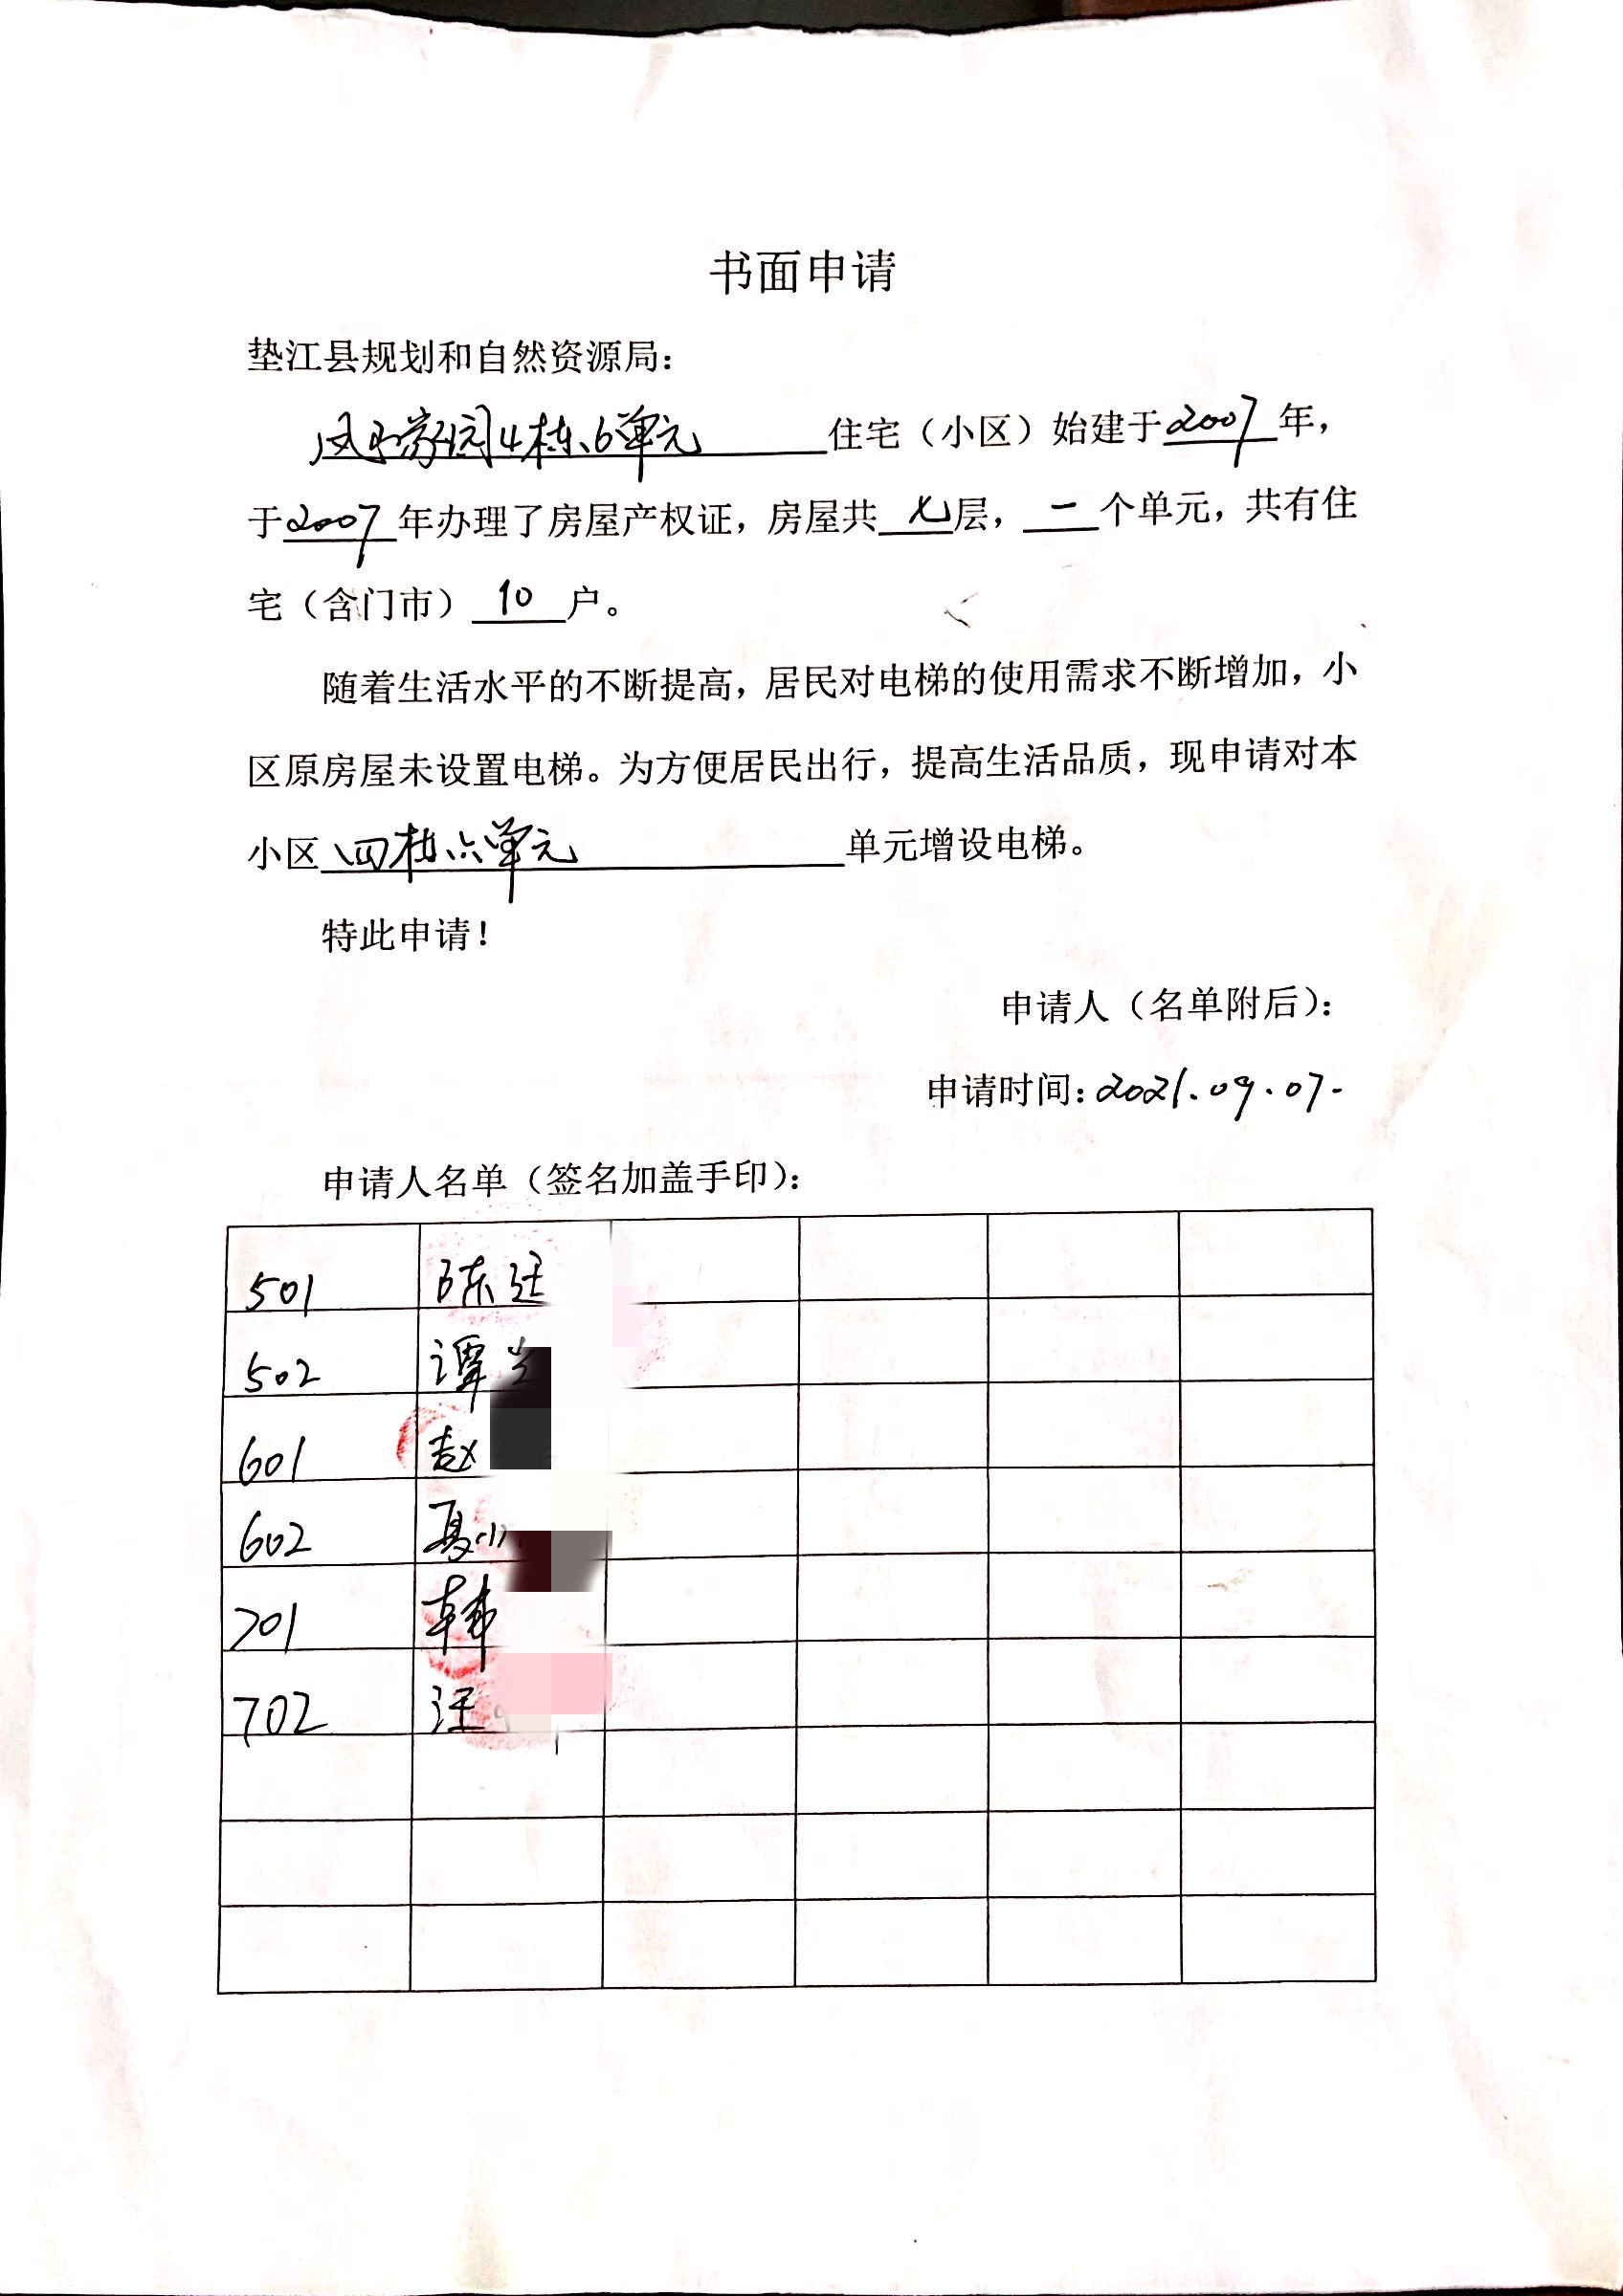 书面申请
垫江县规划和自然资源局：
风子家园4栋、6单元住宅（小区）始建于2007年，
于2007年办理了房屋产权证，房屋共七层，一个单元，共有住
宅（含门市）10户。
随着生活水平的不断提高，居民对电梯的使用需求不断增加，小
区原房屋未设置电梯。为方便居民出行，提高生活品质，现申请对本
小区四栋六单元单元增设电梯。
特此申请！
申请人（名单附后）：
申请时间：2021.09.07.
申请人名单（签名加盖手印）：
501 陈廷
502 谭
601 赵
602 聂小
701 韩
702 汪